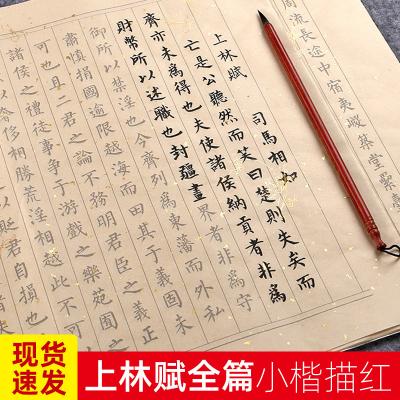 周流長途中宿夷嵕築堂
上林賦
司馬相如
亡是公聽然而笑曰楚則失矣而
齊亦未爲得也夫使諸侯納貢者非爲
財幣所以述職也封疆畫界者非爲守
禦所以禁淫也今齊列爲東藩而外私
肅慎捐國逾限越海而田其于義固未
可也且二君之論不務明君臣之義正
諸侯之禮徒事爭于游戲之樂苑囿之
奢侈相勝荒淫相越此不可
君自損也
现货
速发
上林赋全篇小楷描红